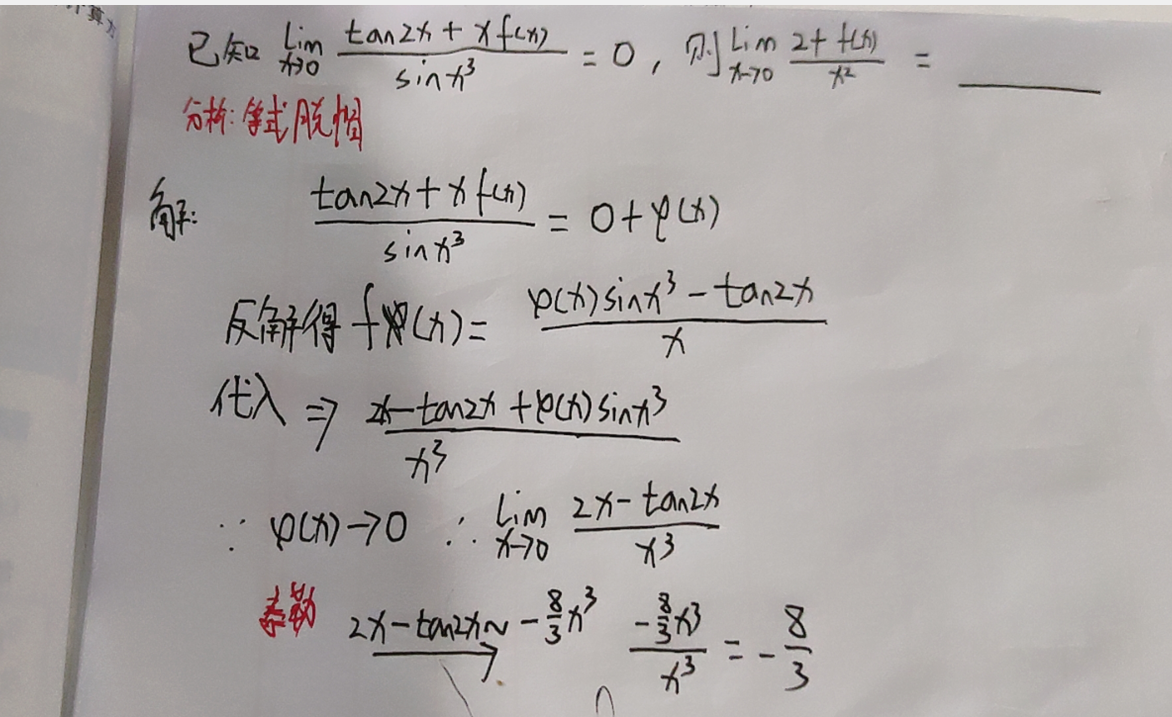 算方
已知 lim x→0 (tan2x + xf(x))/(sinx³) = 0, 则 lim x→0 (2+f(x))/x² = ____
分析: 等式脱帽
解: (tan2x + xf(x))/(sinx³) = 0 + φ(x)
反解得 f(x) = (φ(x)sinx³ - tan2x)/x
代入 ⇒ (2x - tan2x + φ(x)sinx³)/x³
∵ φ(x)→0 ∴ lim x→0 (2x - tan2x)/x³
泰勒 2x - tan2x ~ -8/3 x³ → (-8/3 x³)/x³ = -8/3